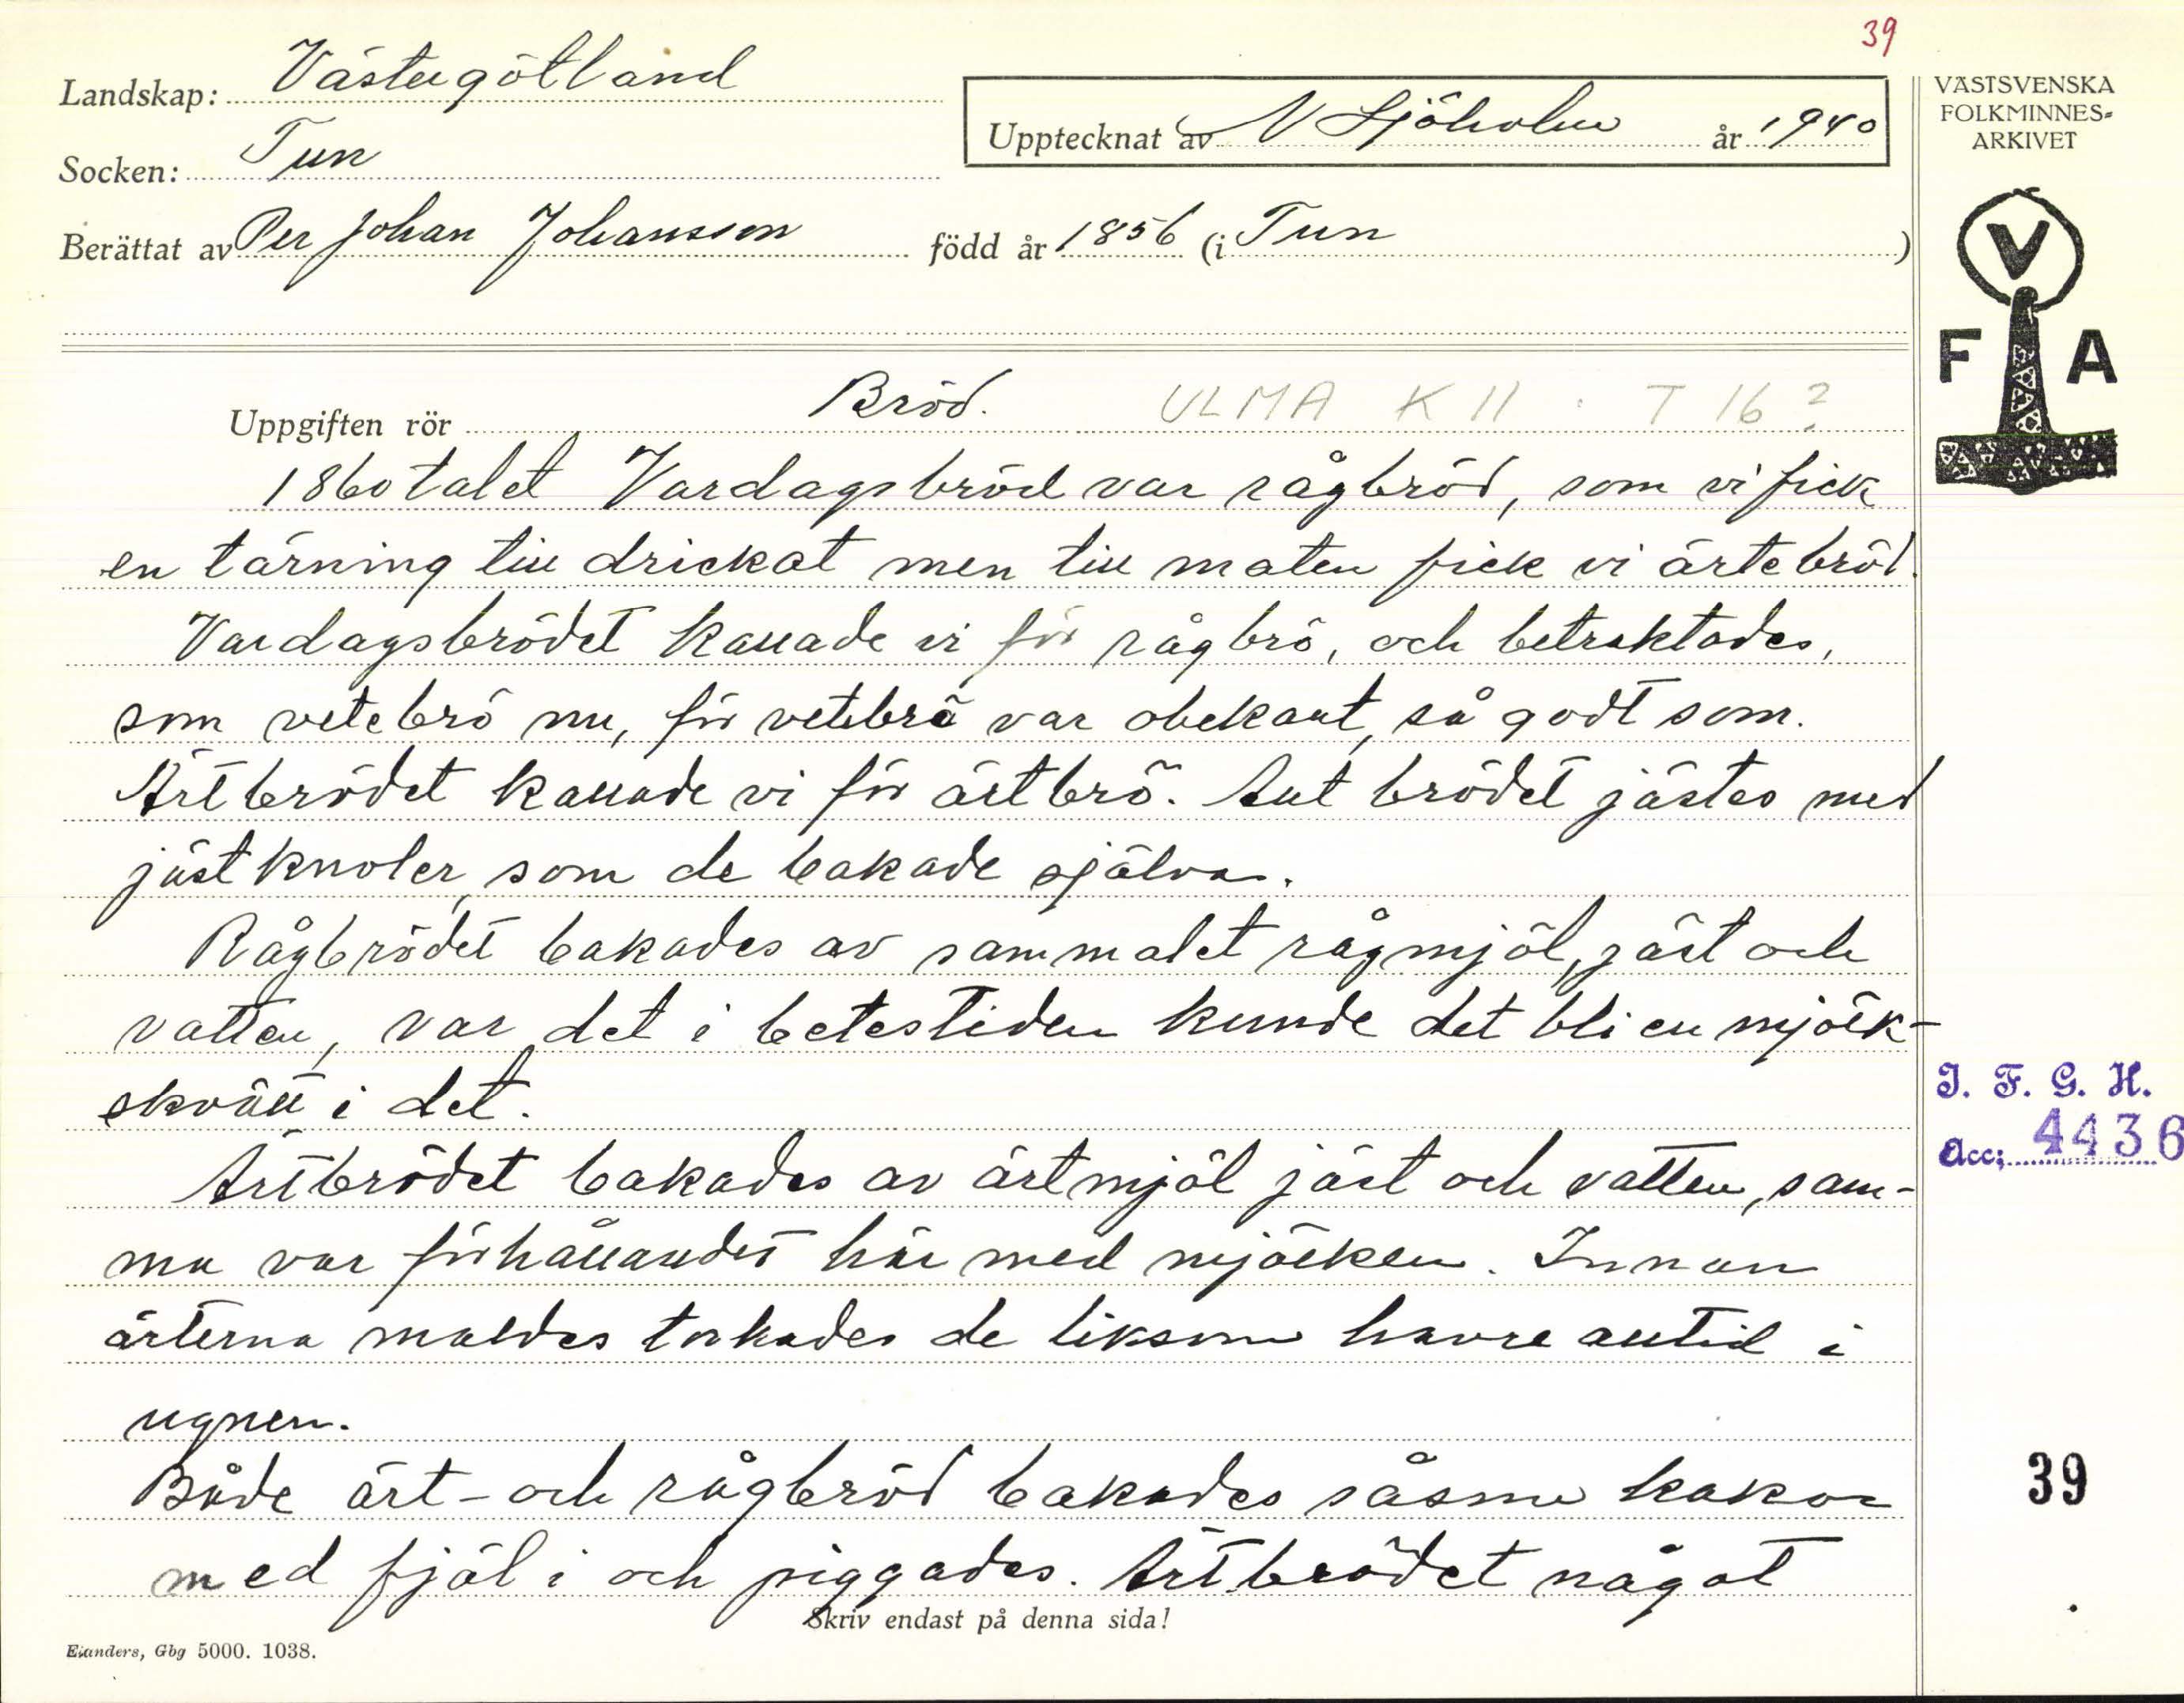 39
Landskap: Västergötland
Socken: Tun
Berättat av Per Johan Johansson född år 1856 (i Tun)
Upptecknat av N Sjöholm år 1940
VÄSTSVENSKA
FOLKMINNES-
ARKIVET
V
F A
Uppgiften rör Bröd. ULMA K 11 : T 16?
1860talet Vardagsbröd var rågbröd, som vi fick
en tärning till drickat men till maten fick vi ärtebröd.
Vardagsbrödet kallade vi för rågbrö, och betraktades,
som vetebrö nu, för vetebrö var obekant, så godt som.
Ärtbrödet kallade vi för ärtbrö. Allt brödet jästes med
jästknoler, som de bakade själva.
Rågbrödet bakades av sammalet rågmjöl, jäst och
vatten, var det i betestiden kunde det bli en mjölk-
skvätt i det.
Ärtbrödet bakades av ärtmjöl jäst och vatten, sam-
ma var förhållandet här med mjölken. Innan
ärterna maldes torkades de liksom havre alltid i
ugnen.
Både ärt- och rågbröd bakades såsom kakor
med fjöl i och piggades. Ärtbrödet något
Skriv endast på denna sida!
Elanders, Gbg 5000. 1038.
I. F. G. H.
Acc: 4436
39